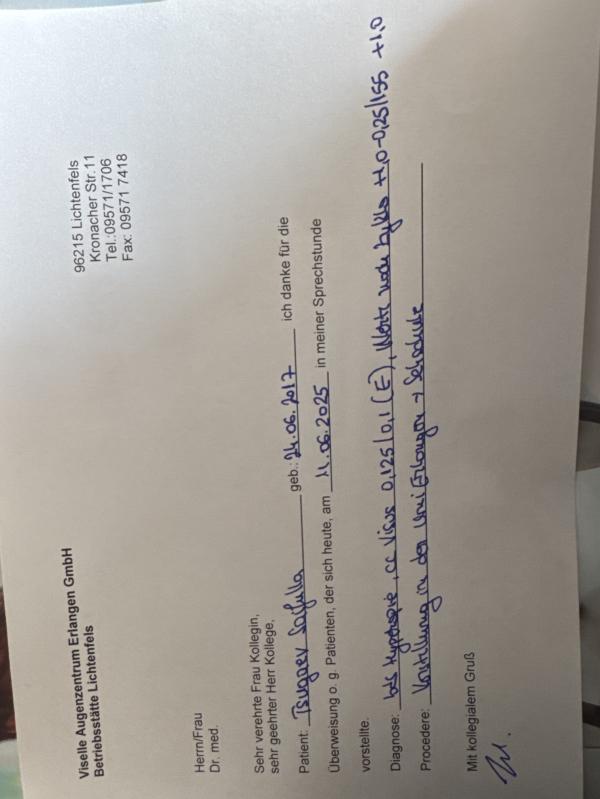 Viselle Augenzentrum Erlangen GmbH
Betriebsstätte Lichtenfels
96215 Lichtenfels
Kronacher Str.11
Tel.:09571/1706
Fax: 09571 7418
Herrn/Frau
Dr. med.
Sehr verehrte Frau Kollegin,
sehr geehrter Herr Kollege,
Patient: Tsugaev Saifulla geb.: 24.06.2017 ich danke für die
Überweisung o. g. Patienten, der sich heute, am 11.06.2025 in meiner Sprechstunde
vorstellte.
Diagnose: bds Hyperopie, cc Visus 0,125/0,1 (E), Werte nach Zyklo +1,0-0,25/155 +1,0
Procedere: Vorstellung in der Uni Erlangen → Sehschule
Mit kollegialem Gruß